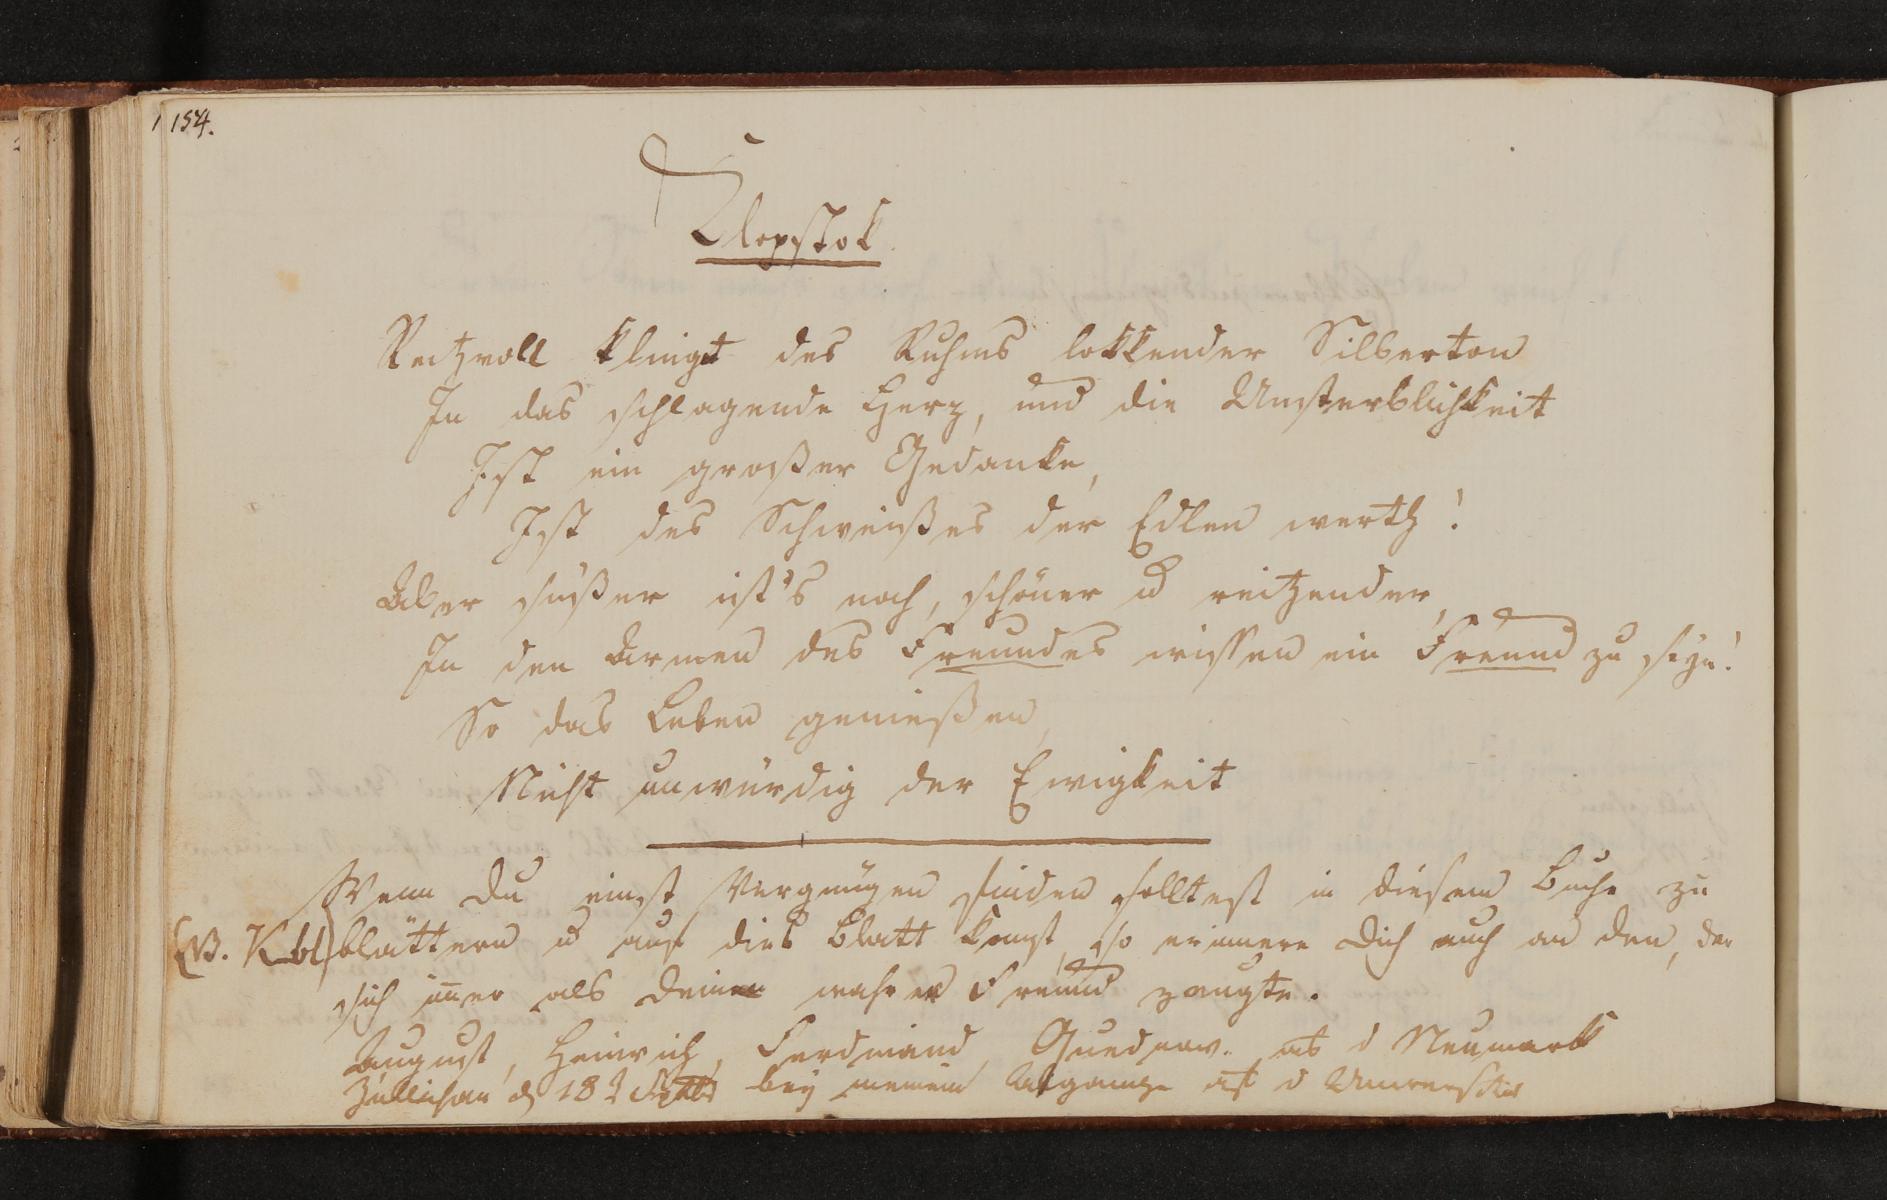 154.
Klopstok
Reitzvoll klingt des Ruhms lokkender Silberton
In das schlagende Herz, und die Unsterblichkeit
Ist ein großer Gedanke,
Ist des Schweißes der Edlen werth!
Aber süßer ist's noch, schöner u reitzender,
In den Armen des Freundes wissen ein Freund zu seyn!
So das Leben genießen,
Nicht unwürdig der Ewigkeit
Wenn Du einst Vergnügen finden solltest in diesem Buche zu
blättern u auf dies Blatt komst, so erinnere Dich auch an den, der
sich im̅er als Deinen wahren Freund zeugte.
August, Heinrich, Ferdinand, Quednow. aus d Neumark
Züllichau d 18 Septbr bey meinem Abgange auf d Universität